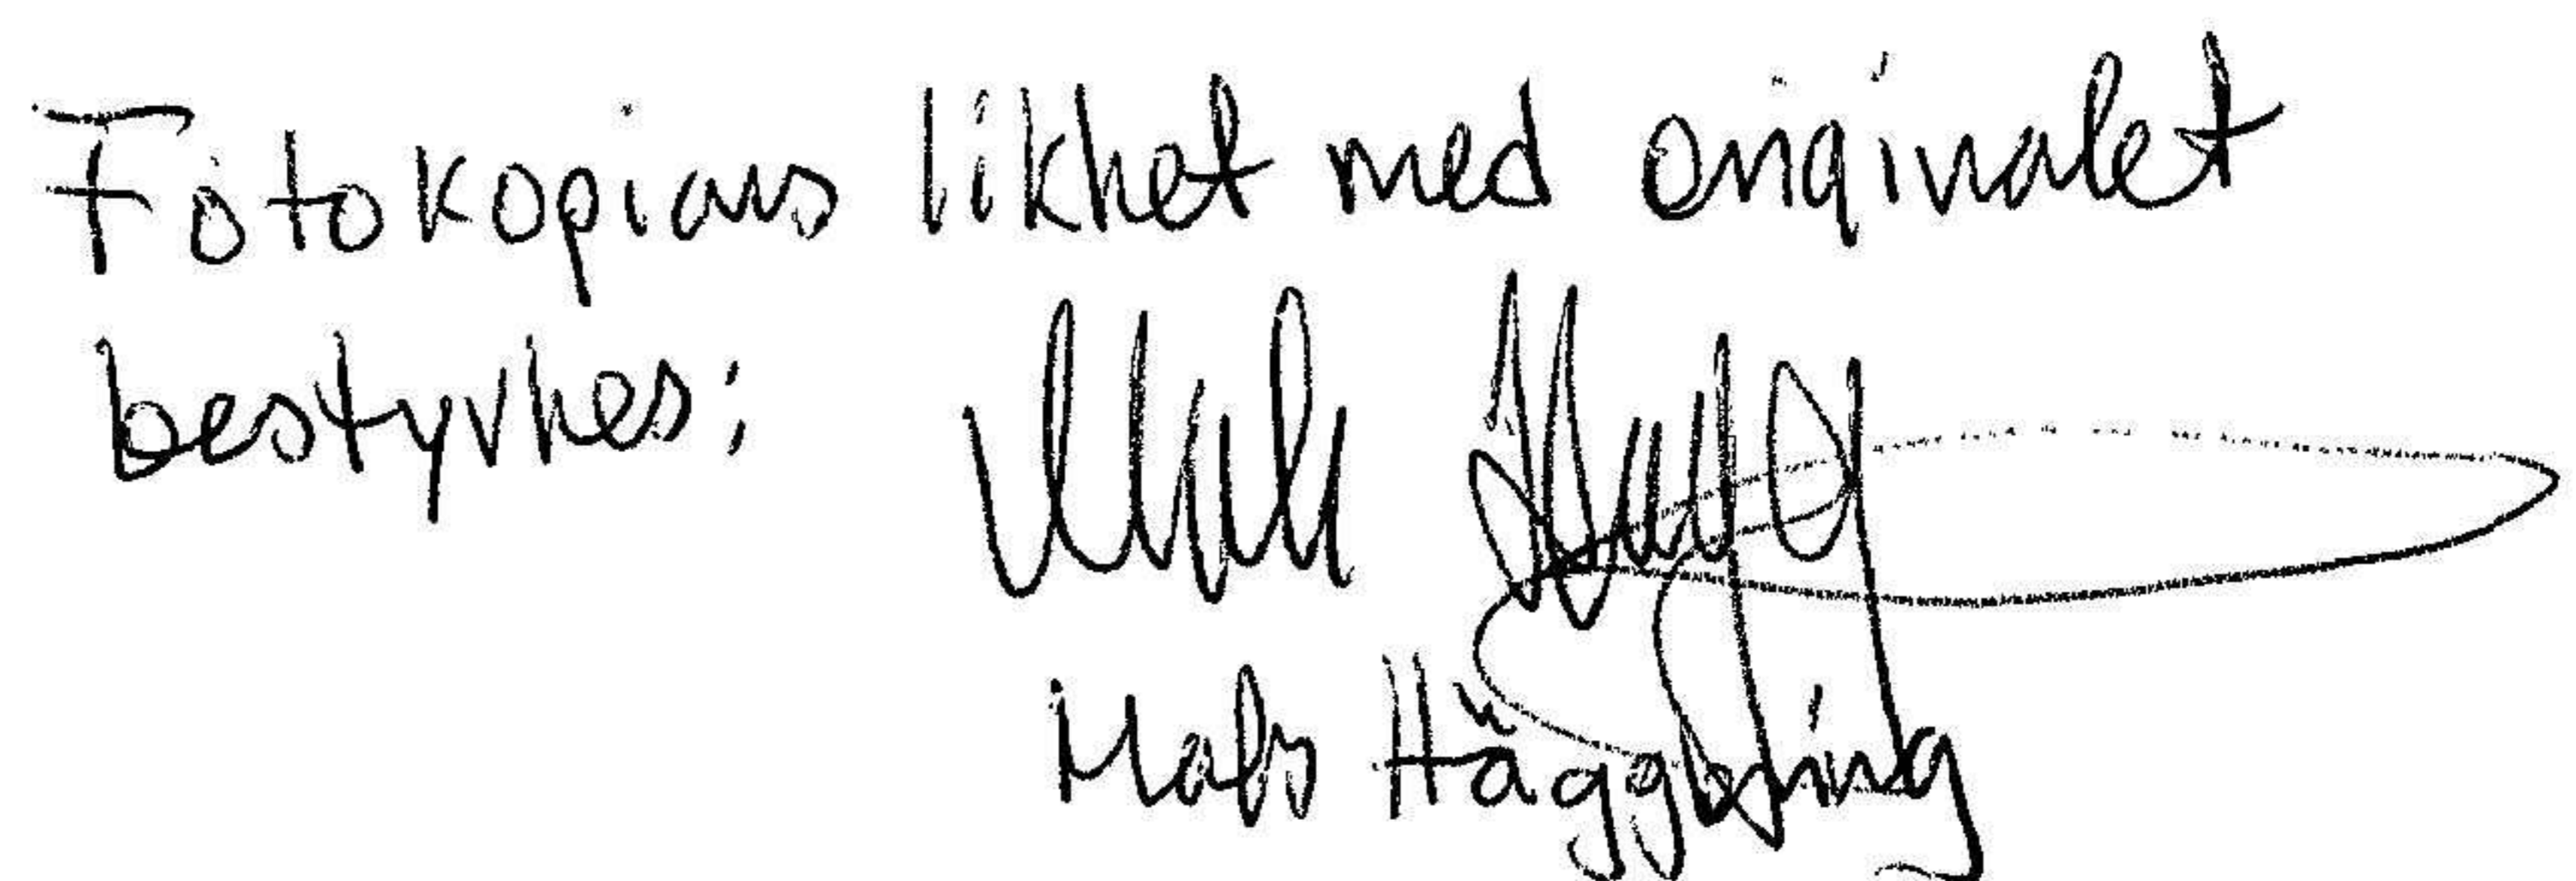 Fotokopians likhet med originalet
bestyrkes:
Mats Häggbring